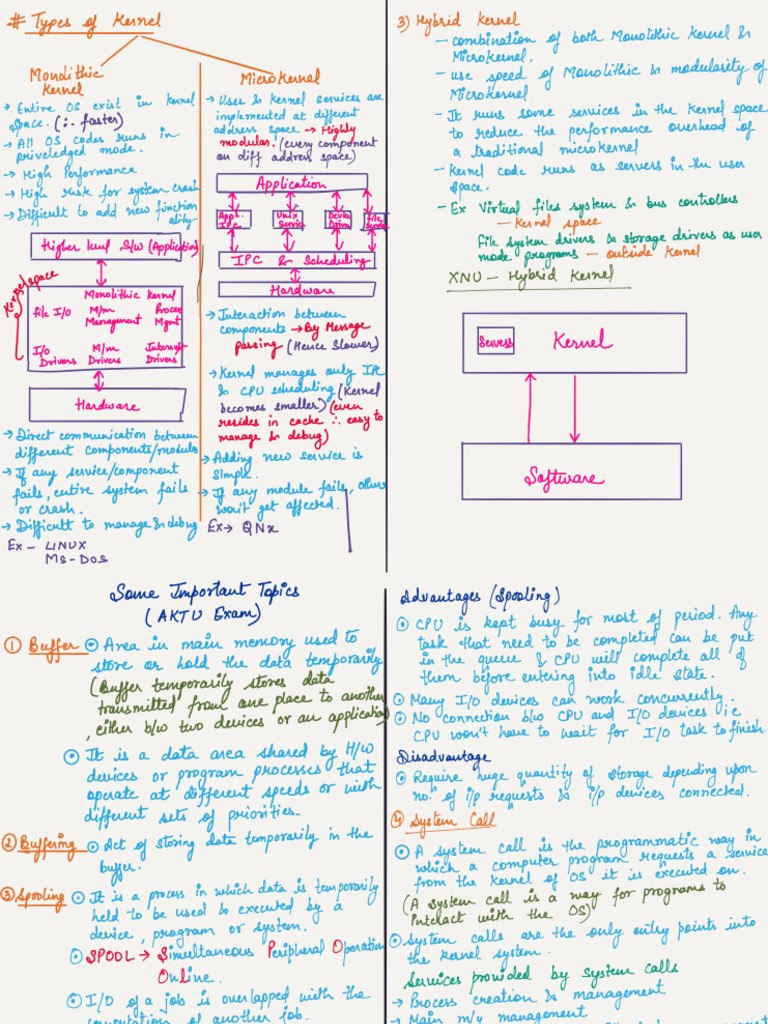 # Types of Kernel
Monolithic
Kernel
→ Entire OS exist in kernel
space. (∴ faster)
→ All OS codes runs in
priveledged mode.
→ High Performance
→ High risk for system crash
→ Difficult to add new function
ality
Higher level S/W (Application)
Kernel space
Monolithic Kernel
File I/O M/m Proces
Management Mgmt
I/O M/m Interrupt
Drivers Drivers Drivers
Hardware
→ Direct communication between
different components/modules
→ If any service/component
fails, entire system fails
or crash.
→ Difficult to manage & debug
Ex – LINUX
MS-DOS
Microkernel
→ Users & kernel services are
implemented at different
address space. → Highly
modular. (every component
on diff address space)
Application
Appli. Unix Device File
IPC Service Driver
IPC & Scheduling
Hardware
→ Interaction between
components → By Message
passing (Hence Slower)
→ Kernel manages only IPC
& CPU scheduling (Kernel
becomes smaller) (even
resides in cache ∴ easy to
manage & debug)
→ Adding new service is
simple.
→ If any module fails, others
won't get affected.
Ex → QNX
3) Hybrid Kernel
– combination of both Monolithic Kernel &
Microkernel.
– use speed of Monolithic & modularity of
Microkernel
– It runs some services in the kernel space
to reduce the performance overhead of
a traditional microkernel
– Kernel code runs as servers in the user
space.
– Ex Virtual files system & bus controllers
– Kernel space
File system drivers & storage drivers as user
mode programs – outside kernel
XNU – Hybrid Kernel
Servers Kernel
Software
Some Important Topics
(AKTU Exam)
1 Buffer Area in main memory used to
store or hold the data temporarily
(Buffer temporarily stores data
transmitted from one place to another
, either b/w two devices or an application)
It is a data area shared by H/W
devices or program processes that
operate at different speeds or with
different sets of priorities.
2 Buffering Act of storing data temporarily in the
buffer.
3 Spooling It is a process in which data is temporarily
held to be used & executed by a
device, program or system.
SPOOL → Simultaneous Peripheral Operation
OnLine.
I/O of a job is overlapped with the
computation of another job.
Advantages (Spooling)
CPU is kept busy for most of period. Any
task that need to be completed can be put
in the queue & CPU will complete all of
them before entering into idle state.
Many I/O devices can work concurrently.
No connection b/w CPU and I/O devices i.e
CPU won't have to wait for I/O task to finish.
Disadvantage
Require huge quantity of storage depending upon
no. of i/p requests & i/p devices connected.
4 System Call
A system call is the programmatic way in
which a computer program requests a service
from the kernel of OS it is executed on.
(A system call is a way for programs to
interact with the OS)
System calls are the only entry points into
the kernel system.
Services provided by system calls
→ Process creation & management
→ Main m/y management